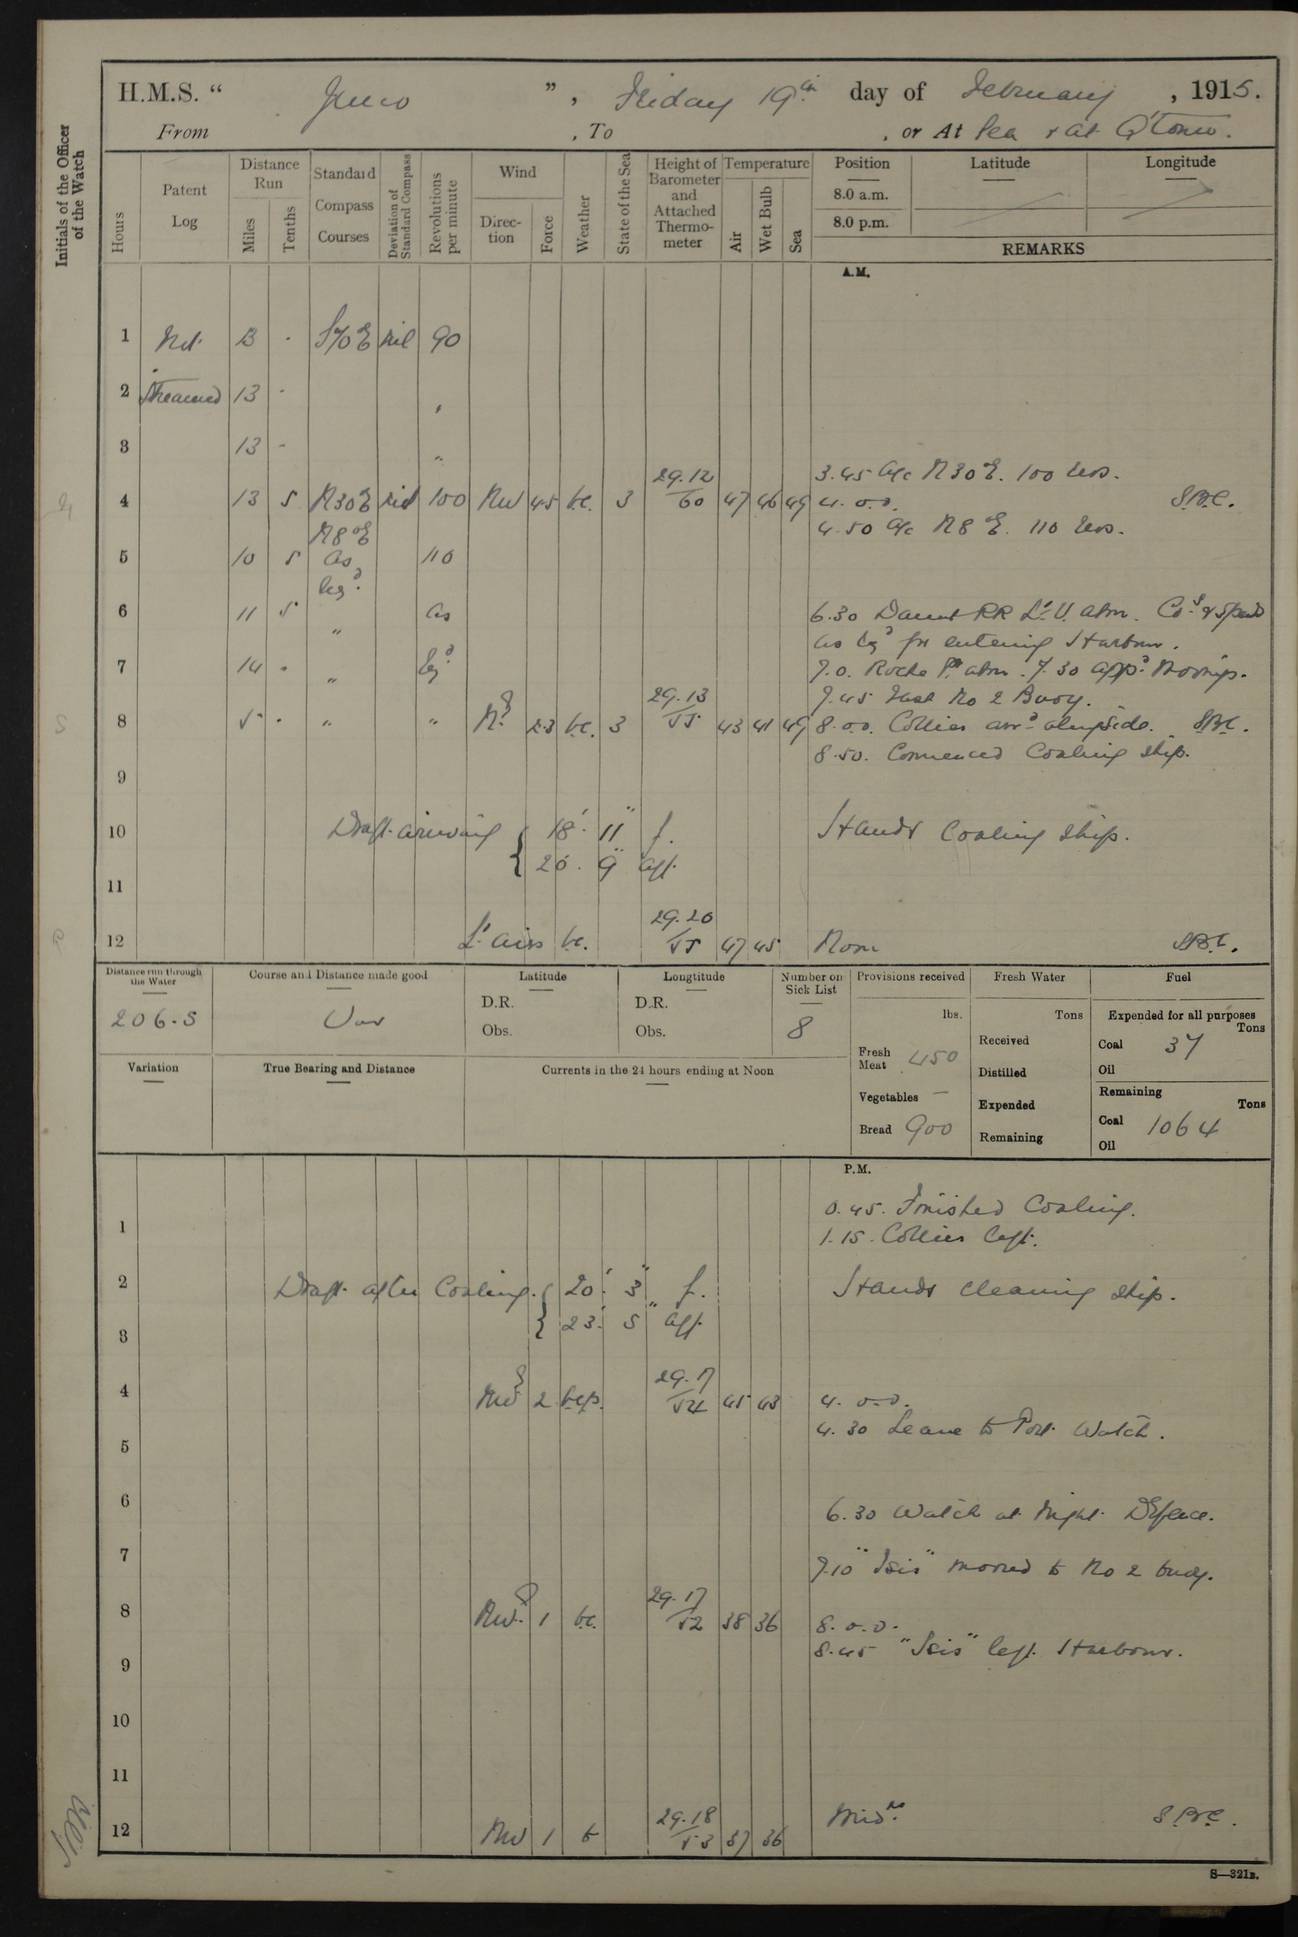 H.M.S. “ Juno ” , Friday 19th day of February , 1915.
From , To , or At Sea & at Q'town.
Initials of the Officer of the Watch
Hours
Patent Log
Distance Run
Miles
Tenths
Standard Compass Courses
Deviation of Standard Compass
Revolutions per minute
Wind
Direction
Force
Weather
State of the Sea
Height of Barometer and Attached Thermometer
Temperature
Air
Wet Bulb
Sea
Position
Latitude
Longitude
8.0 a.m.
8.0 p.m.
REMARKS
A.M.
1 Not 13 - S70E nil 90
2 Streamed 13 - "
3 13 - "
3.45 A/c N30°E. 100 revs.
4 13 5 N30E nil 100 NW 4.5 b.c. 3 29.12/60 47 46 49 4.0.0. S.B.C.
N8°E
4.50 A/c N8°E. 110 revs.
5 10 5 as 110
req^d
6 11 5 " as
6.30 Daunt RR Lt V. abm. Co^s & speed
as req^d for entering Harbour.
7 14 - " req^d 7.0. Roche Pt abm. 7.30 app^d Moorings.
7.45 Fast No 2 Buoy.
8 5 - " " N^ly 2.3 b.c. 3 29.13/55 43 41 49 8.0.0. Collier arr^d alongside. S.B.C.
8.50. Commenced Coaling ship.
9
10 Draft arriving { 18' 11" f. Hands Coaling Ship.
20' 9" aft.
11
12 Lt airs b.c. 29.20/55 47 45 Noon S.B.C.
Distance run through the Water
Course and Distance made good
Latitude
Longtitude
Number on Sick List
Provisions received
Fresh Water
Fuel
206.5
Var
D.R.
Obs.
D.R.
Obs.
8
lbs.
Fresh Meat 450
Vegetables —
Bread 900
Tons
Received
Distilled
Expended
Remaining
Expended for all purposes
Tons
Coal 37
Oil
Remaining
Tons
Coal 1064
Oil
Variation
True Bearing and Distance
Currents in the 24 hours ending at Noon
P.M.
0.45. Finished Coaling.
1
1.15. Collier left.
2 Draft after Coaling. { 20' 3" f. Hands cleaning ship.
23' 5" aft.
3
4 NW^ly 2 bcp. 29.17/54 45 43 4.0.0.
4.30 Leave to Port Watch.
5
6 6.30 Watch at Night Defence.
7 7.10 "Isis" moored to No 2 buoy.
8 NW^ly 1 b.c. 29.17/52 38 36 8.0.0.
8.45 "Isis" left Harbour.
9
10
11
12 NW 1 b 29.18/53 37 36 Mid^nt. S.B.C.
S—321B.